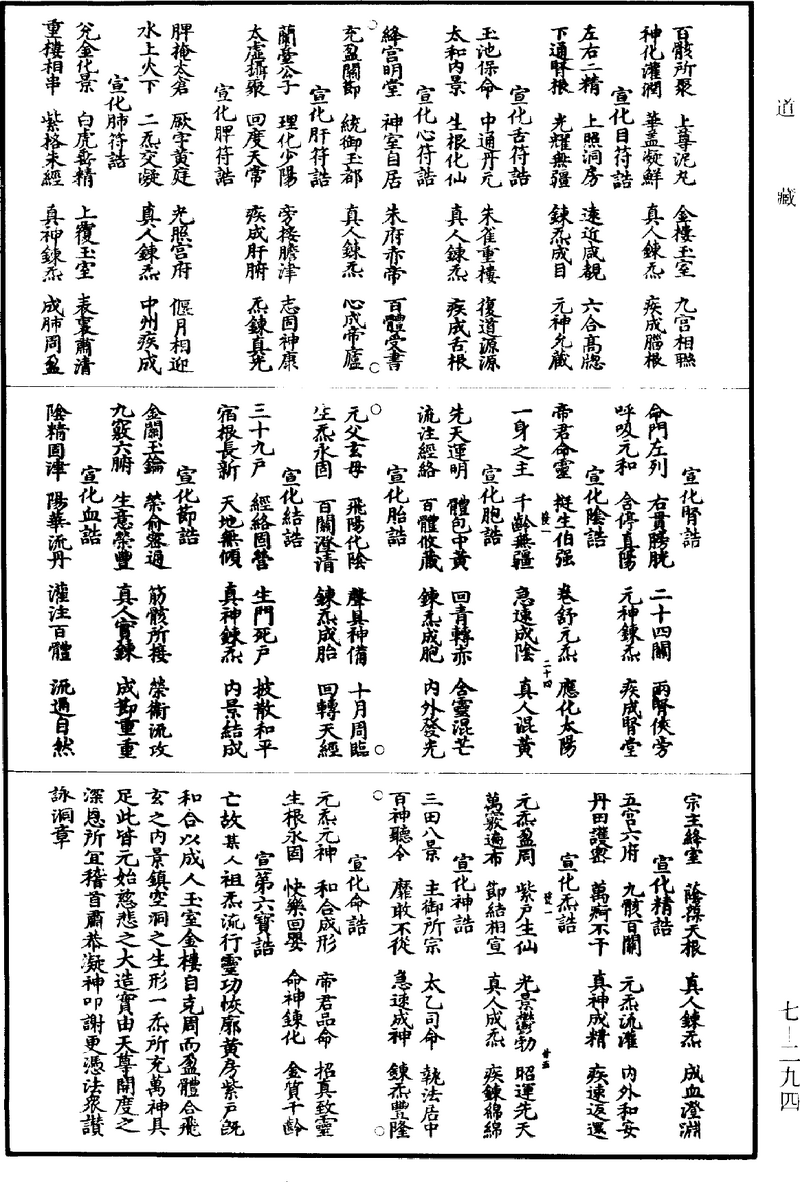 道藏
七—二九四
百骸所聚　上尊泥丸　金樓玉室　九宮相聯
神化灌潤　華蓋凝鮮　真人鍊炁　疾成腦根
宣化目符誥
左右二精　上照洞房　遠近咸覩　六合高牕
下通腎根　光耀無疆　鍊炁成目　元神允藏
宣化舌符誥
玉池保命　中通丹元　朱雀重樓　復道源源
太和内景　生根化仙　真人鍊炁　疾成舌根
宣化心符誥
絳宮明堂　神室自居　朱府赤帝　百體受書
充盈關節　統御玉都　真人鍊炁　心成帝廬
宣化肝符誥
蘭臺公子　理化少陽　旁接膽津　志固神康
太虛攝聚　回度天常　疾成肝腑　炁鍊真光
宣化脾符誥
脾掩太倉　厥字黃庭　光照宮府　偃月相迎
水上火下　二炁交凝　真人鍊炁　中州疾成
宣化肺符誥
兊金化景　白虎毒精　上覆玉室　表裏蕭清
重樓相串　紫格朱經　真神鍊炁　成肺周盈
宣化腎誥
命門左列　右貫膀胱　二十四關　兩腎俠旁
呼吸元和　含停真陽　元神鍊炁　疾成腎堂
宣化陰誥
帝君命靈　挺生伯强　卷舒元炁　應化太陽
一身之主　千齡無疆　急速成陰　真人混黃
二十四
宣化胞誥
先天運明　體包中黃　回青轉赤　含靈混芒
流注經絡　百體攸藏　鍊炁成胞　内外發光
宣化胎誥
元父玄母　飛陽化陰　聲具神備　十月周臨
生炁永固　百關澄清　鍊炁成胎　回轉天經
宣化結誥
三十九戶　經絡固營　生門死戶　披散和平
宿根長新　天地無傾　真神鍊炁　内景結成
宣化節誥
金關玉鑰　榮俞密通　筋骸所接　榮衞流攻
九竅六腑　生意榮豐　真人實鍊　成節重重
宣化血誥
陰精固津　陽華流丹　灌注百體　流通自然
宗主絳室　蔭葆天根　真人鍊炁　成血澄淵
宣化精誥
五宮六府　九骸百關　元炁流灌　内外和安
丹田護與　萬痾不干　真神成精　疾速返還
宣化炁誥
元炁盈周　紫戶生仙　光景鬱勃　昭運先天
萬竅遍布　節結相宣　真人成炁　疾鍊綿綿
宣化神誥
三田八景　主御所宗　太乙司命　執法居中
百神聽令　靡敢不從　急速成神　鍊炁豐隆
宣化命誥
元炁元神　和合成形　帝君品命　招真致靈
生根永固　快樂回嬰　命神鍊化　金質千齡
宣第六寶誥
亡故某人祖炁流行靈功恢廓黃房紫戶既
和合以成人玉室金樓自克周而盈體合飛
玄之内景鎮空洞之生形一炁所充萬神具
足此皆元始慈悲之大造實由天尊開度之
深恩所宜稽首肅恭凝神叩謝更憑法衆讃
詠洞章